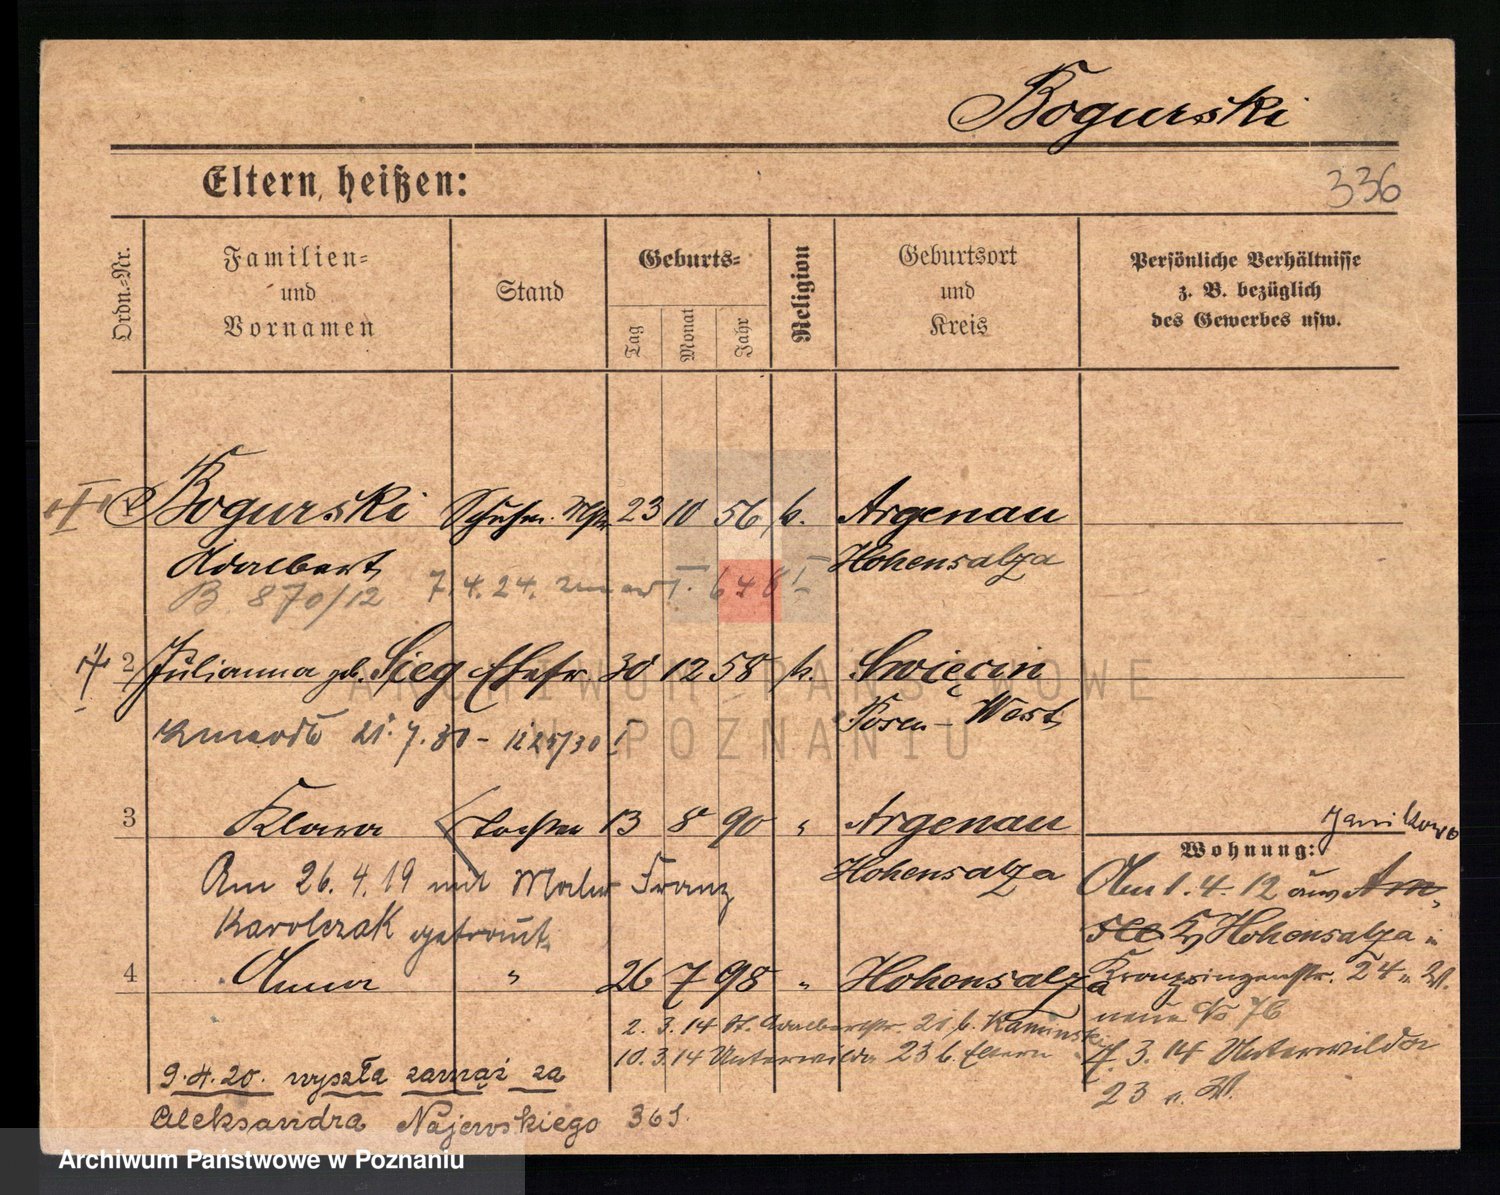 Bogurski
Eltern heißen:
336
Ordn.-Nr.
Familien- und Vornamen
Stand
Geburts-
Tag
Monat
Jahr
Religion
Geburtsort und Kreis
Persönliche Verhältnisse
z. B. bezüglich
des Gewerbes usw.
Bogurski Schuhm. 23 10 56 k. Argenau
Adalbert Hohensalza
B 870/12 7.4.24.
2 Julianna geb. Sieg Ehefr. 30 12 58 k. Swięcin
Posen-West
21.7.30 - 1225/30 I
3 Klara Tochter 13 8 90 " Argenau
Janikowo
Hohensalza
Wohnung:
Am 26.4.19 mit Maler Franz
Karolczak getraut
Am 1.4.12 aus
Hohensalza
4 Anna " 26 7 98 " Hohensalza
Kronprinzenstr. 24
2.3.14 St. Adalbertstr. 21 b. Kaminski
10.3.14 Unterwilda 23 b. Eltern
7.3.14 Unterwilda
23
9.4.20. wyszła zamąż za
Aleksandra Najewskiego
ARCHIWUM PAŃSTWOWE
W POZNANIU
Archiwum Państwowe w Poznaniu